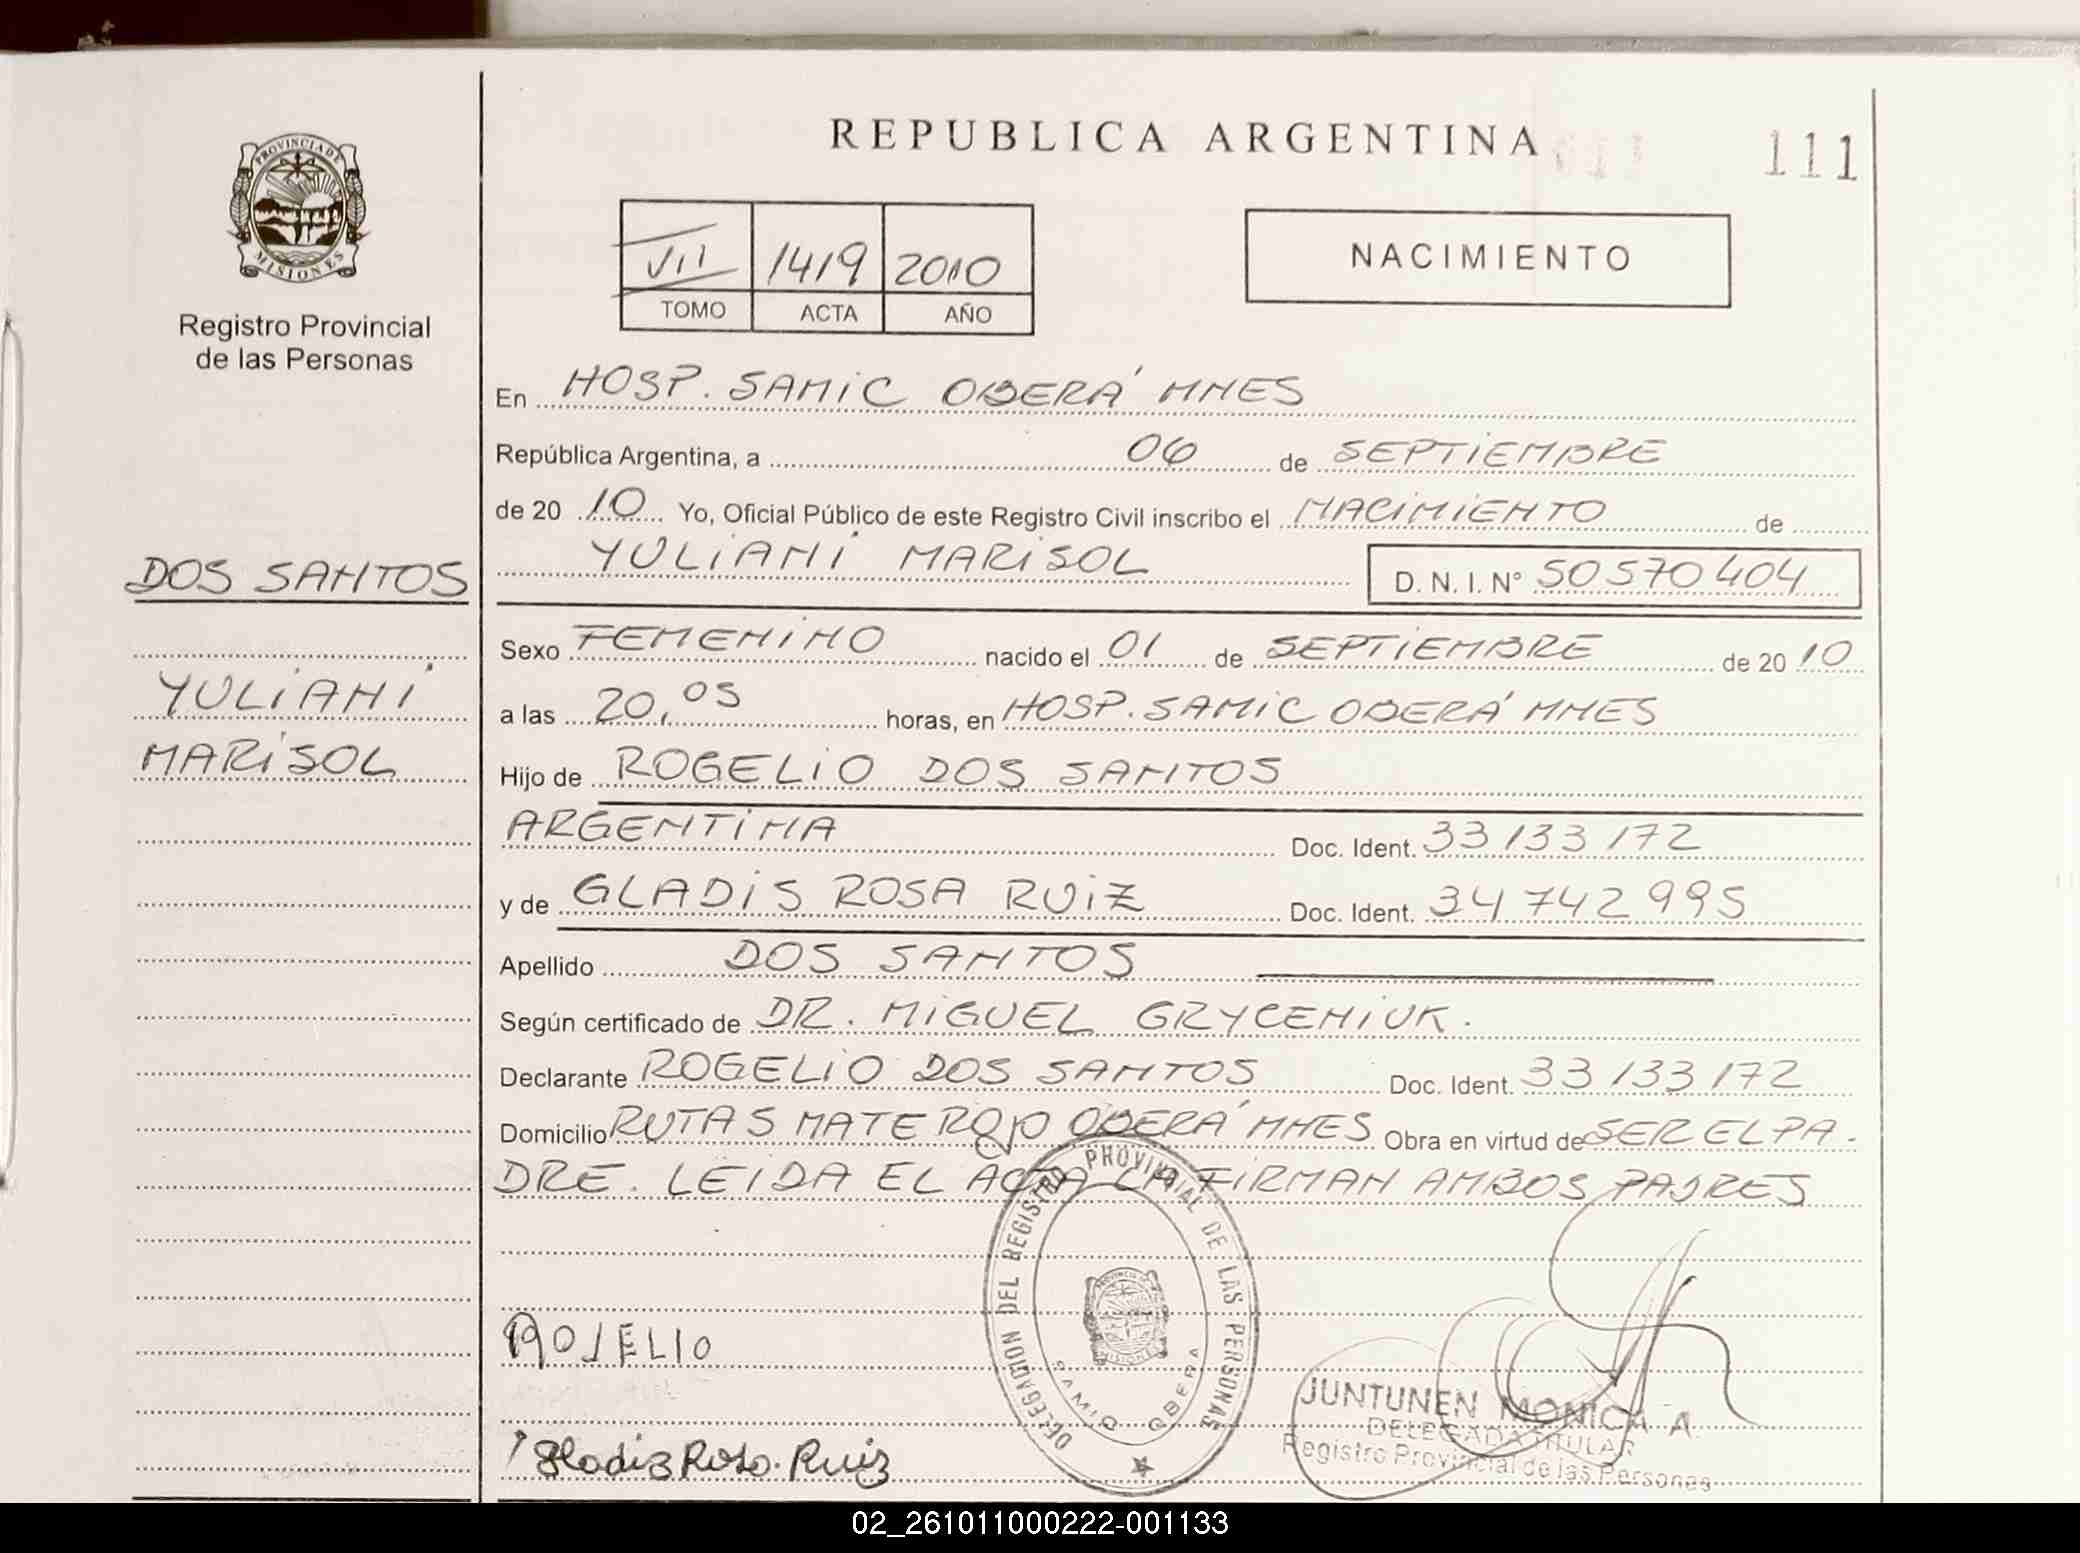 REPUBLICA ARGENTINA
111
PROVINCIA DE MISIONES
Registro Provincial
de las Personas
VII 1419 2010
TOMO ACTA AÑO
NACIMIENTO
En HOSP. SAMIC OBERÁ MNES
República Argentina, a 06 de SEPTIEMBRE
de 20 10 Yo, Oficial Público de este Registro Civil inscribo el NACIMIENTO de
YULIANI MARISOL D. N. I. N° 50570404
DOS SANTOS
YULIANI
MARISOL
Sexo FEMENINO nacido el 01 de SEPTIEMBRE de 20 10
a las 20,05 horas, en HOSP. SAMIC OBERÁ MNES
Hijo de ROGELIO DOS SANTOS
ARGENTINA Doc. Ident. 33133172
y de GLADIS ROSA RUIZ Doc. Ident. 34742995
Apellido DOS SANTOS
Según certificado de DR. MIGUEL GRYCENIUK.
Declarante ROGELIO DOS SANTOS Doc. Ident. 33133172
Domicilio RUTA 5 MATE ROJO OBERÁ MNES Obra en virtud de SER EL PA-
DRE. LEIDA EL ACTA LA FIRMAN AMBOS PADRES
DELEGACION DEL REGISTRO PROVINCIAL DE LAS PERSONAS
SAMIC OBERA
ROJELIO
Gladis Rosa Ruiz
JUNTUNEN MONICA A.
DELEGADA TITULAR
Registro Provincial de las Personas
02_261011000222-001133